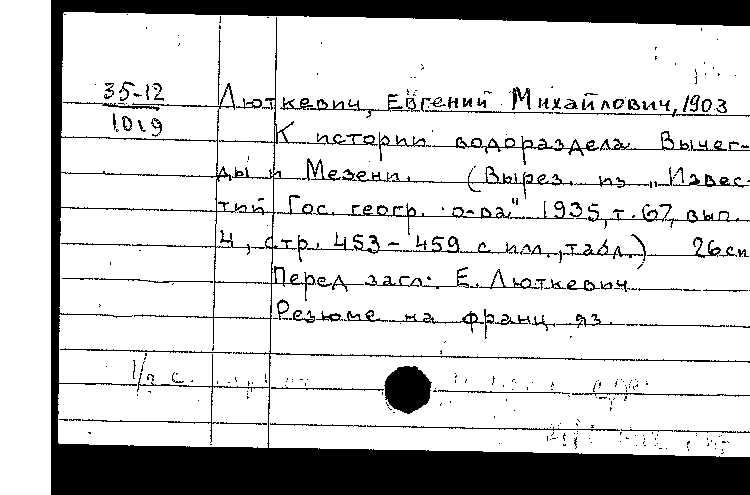 35-12
1019
Люткевич, Евгений Михайлович, 1903
К истории водораздела Вычег-
ды и Мезени. (Вырез. из „Извес-
тий Гос. геогр. о-ва" 1935, т. 67, вып.
4, стр. 453-459 с илл., табл.) 26 см
Перед загл.: Е. Люткевич
Резюме на франц. яз.
1/п с.